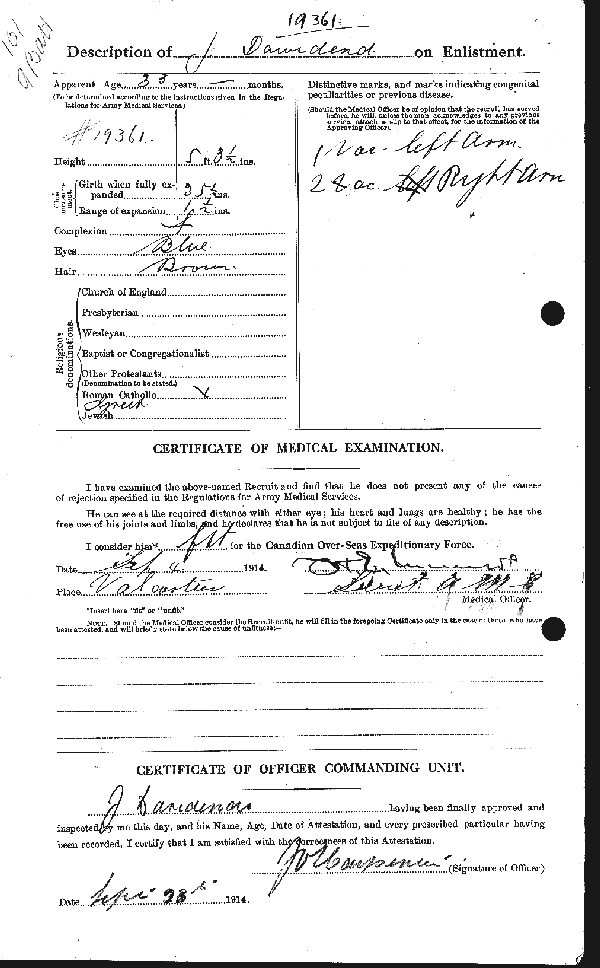 19361.
101
9 Batt
Description of J Davidend on Enlistment.
Apparent Age 33 years — months.
(To be determined according to the instructions given in the Regulations for Army Medical Services.)
# 19361.
Height 5 ft 3½ ins.
Chest measurement.
Girth when fully expanded 35½ ins.
Range of expansion 1½ ins.
Complexion
Eyes Blue
Hair Brown.
Religious denominations.
Church of England
Presbyterian
Wesleyan
Baptist or Congregationalist
Other Protestants
(Denomination to be stated.)
Roman Catholic
Greek
Jewish
Distinctive marks, and marks indicating congenital
peculiarities or previous disease.
(Should the Medical Officer be of opinion that the recruit has served
before, he will, unless the man acknowledges to any previous
service, attach a slip to that effect, for the information of the
Approving Officer).
1 Vac left Arm.
2 Vac left Right Arm
CERTIFICATE OF MEDICAL EXAMINATION.
I have examined the above-named Recruit and find that he does not present any of the causes
of rejection specified in the Regulations for Army Medical Services.
He can see at the required distance with either eye; his heart and lungs are healthy; he has the
free use of his joints and limbs, and he declares that he is not subject to fits of any description.
I consider him* fit for the Canadian Over-Seas Expeditionary Force.
Date Sep 4 1914.
Place Valcartier Lieut A M C
Medical Officer.
*Insert here "fit" or "unfit."
NOTE. Should the Medical Officer consider the Recruit unfit, he will fill in the foregoing Certificate only in the case of those who have
been attested, and will briefly state below the cause of unfitness:—
CERTIFICATE OF OFFICER COMMANDING UNIT.
J having been finally approved and
inspected by me this day, and his Name, Age, Date of Attestation, and every prescribed particular having
been recorded, I certify that I am satisfied with the correctness of this Attestation.
(Signature of Officer)
Date Sept 23 1914.